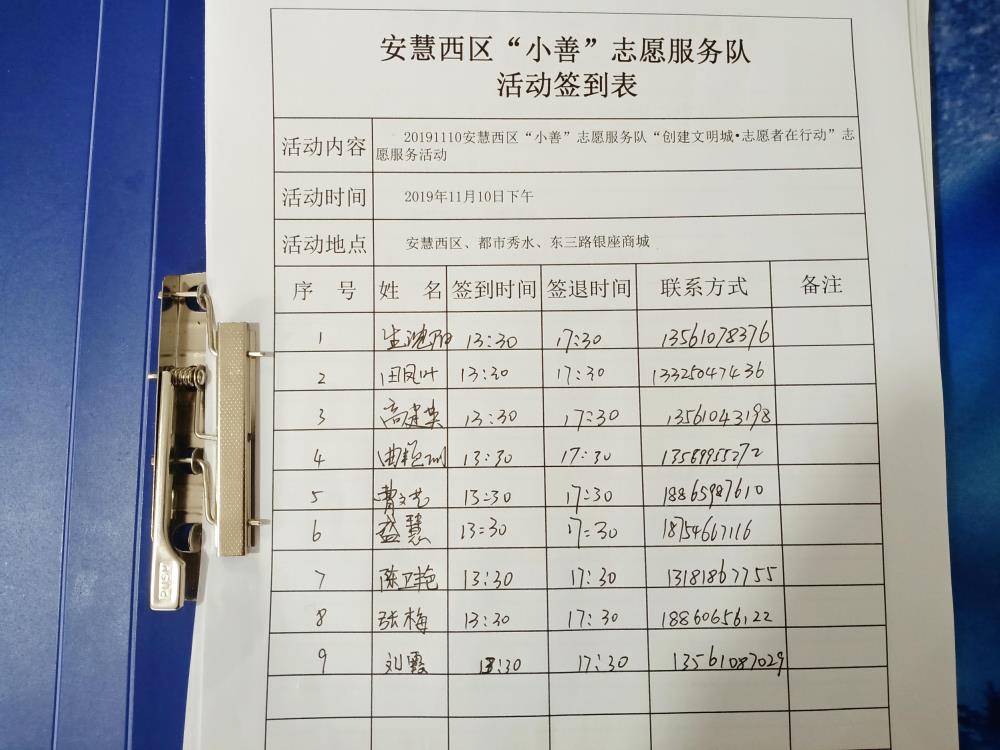 安慧西区“小善”志愿服务队
活动签到表
活动内容 20191110安慧西区“小善”志愿服务队“创建文明城•志愿者在行动”志
愿服务活动
活动时间 2019年11月10日下午
活动地点 安慧西区、都市秀水、东三路银座商城
序 号 姓 名 签到时间 签退时间 联系方式 备注
1 13:30 17:30 13561078376
2 田凤叶 13:30 17:30 13325047436
3 高建英 13:30 17:30 13561043198
4 13:30 17:30 13589955272
5 曹文艺 13:30 17:30 18865987610
6 慧 13:30 17:30 18754667116
7 陈卫艳 13:30 17:30 13181867755
8 张梅 13:30 17:30 18860656122
9 刘霞 13:30 17:30 13561087029